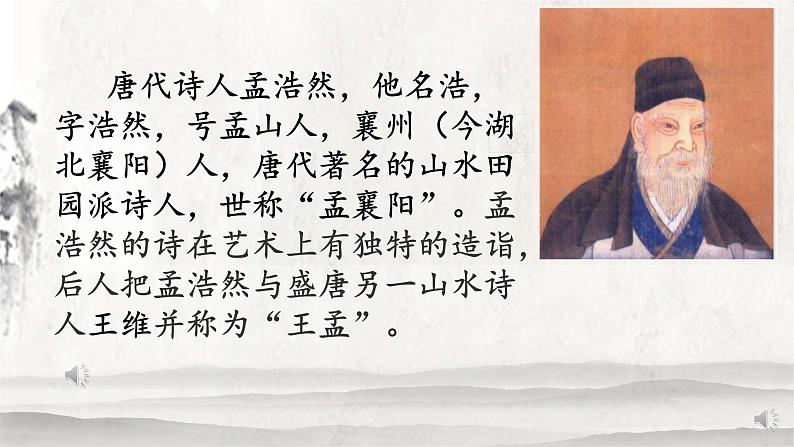 唐代诗人孟浩然，他名浩，
字浩然，号孟山人，襄州（今湖
北襄阳）人，唐代著名的山水田
园派诗人，世称“孟襄阳”。孟
浩然的诗在艺术上有独特的造诣，
后人把孟浩然与盛唐另一山水诗
人王维并称为“王孟”。